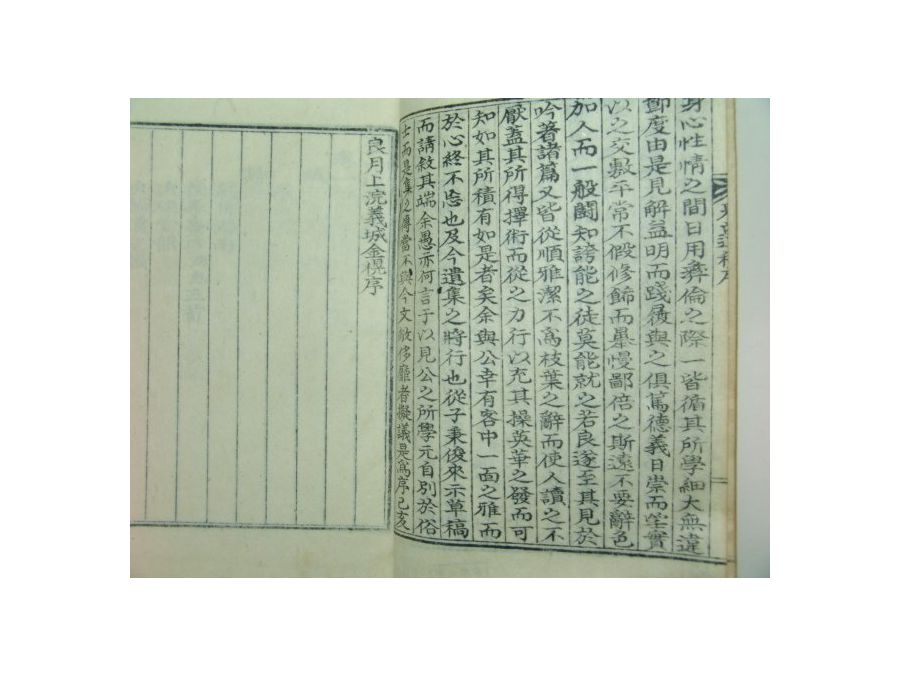 身心性情之間日用彛倫之際一皆循其所學細大無違
卽度由是見解益明而踐履與之俱篤德義日崇而望實
以之交敷平常不假修餙而暴慢鄙倍之斯遠不要辭色
加人而一般鬪知誇能之徒莫能就之若良遂至其見於
吟著諸篇又皆從順雅潔不爲枝葉之辭而使人讀之不
厭盖其所得擇術而從之力行以充其操英華之發而可
知如其所積有如是者矣余與公幸有客中一面之雅而
於心終不忘也及今遺集之時行也從子秉俊來示草稿
而請敘其端余愚亦何言于以見公之所學元自別於俗
士而是集之傳當不與今文 侈靡者擬議是爲序己亥
良月上浣義城金榥序